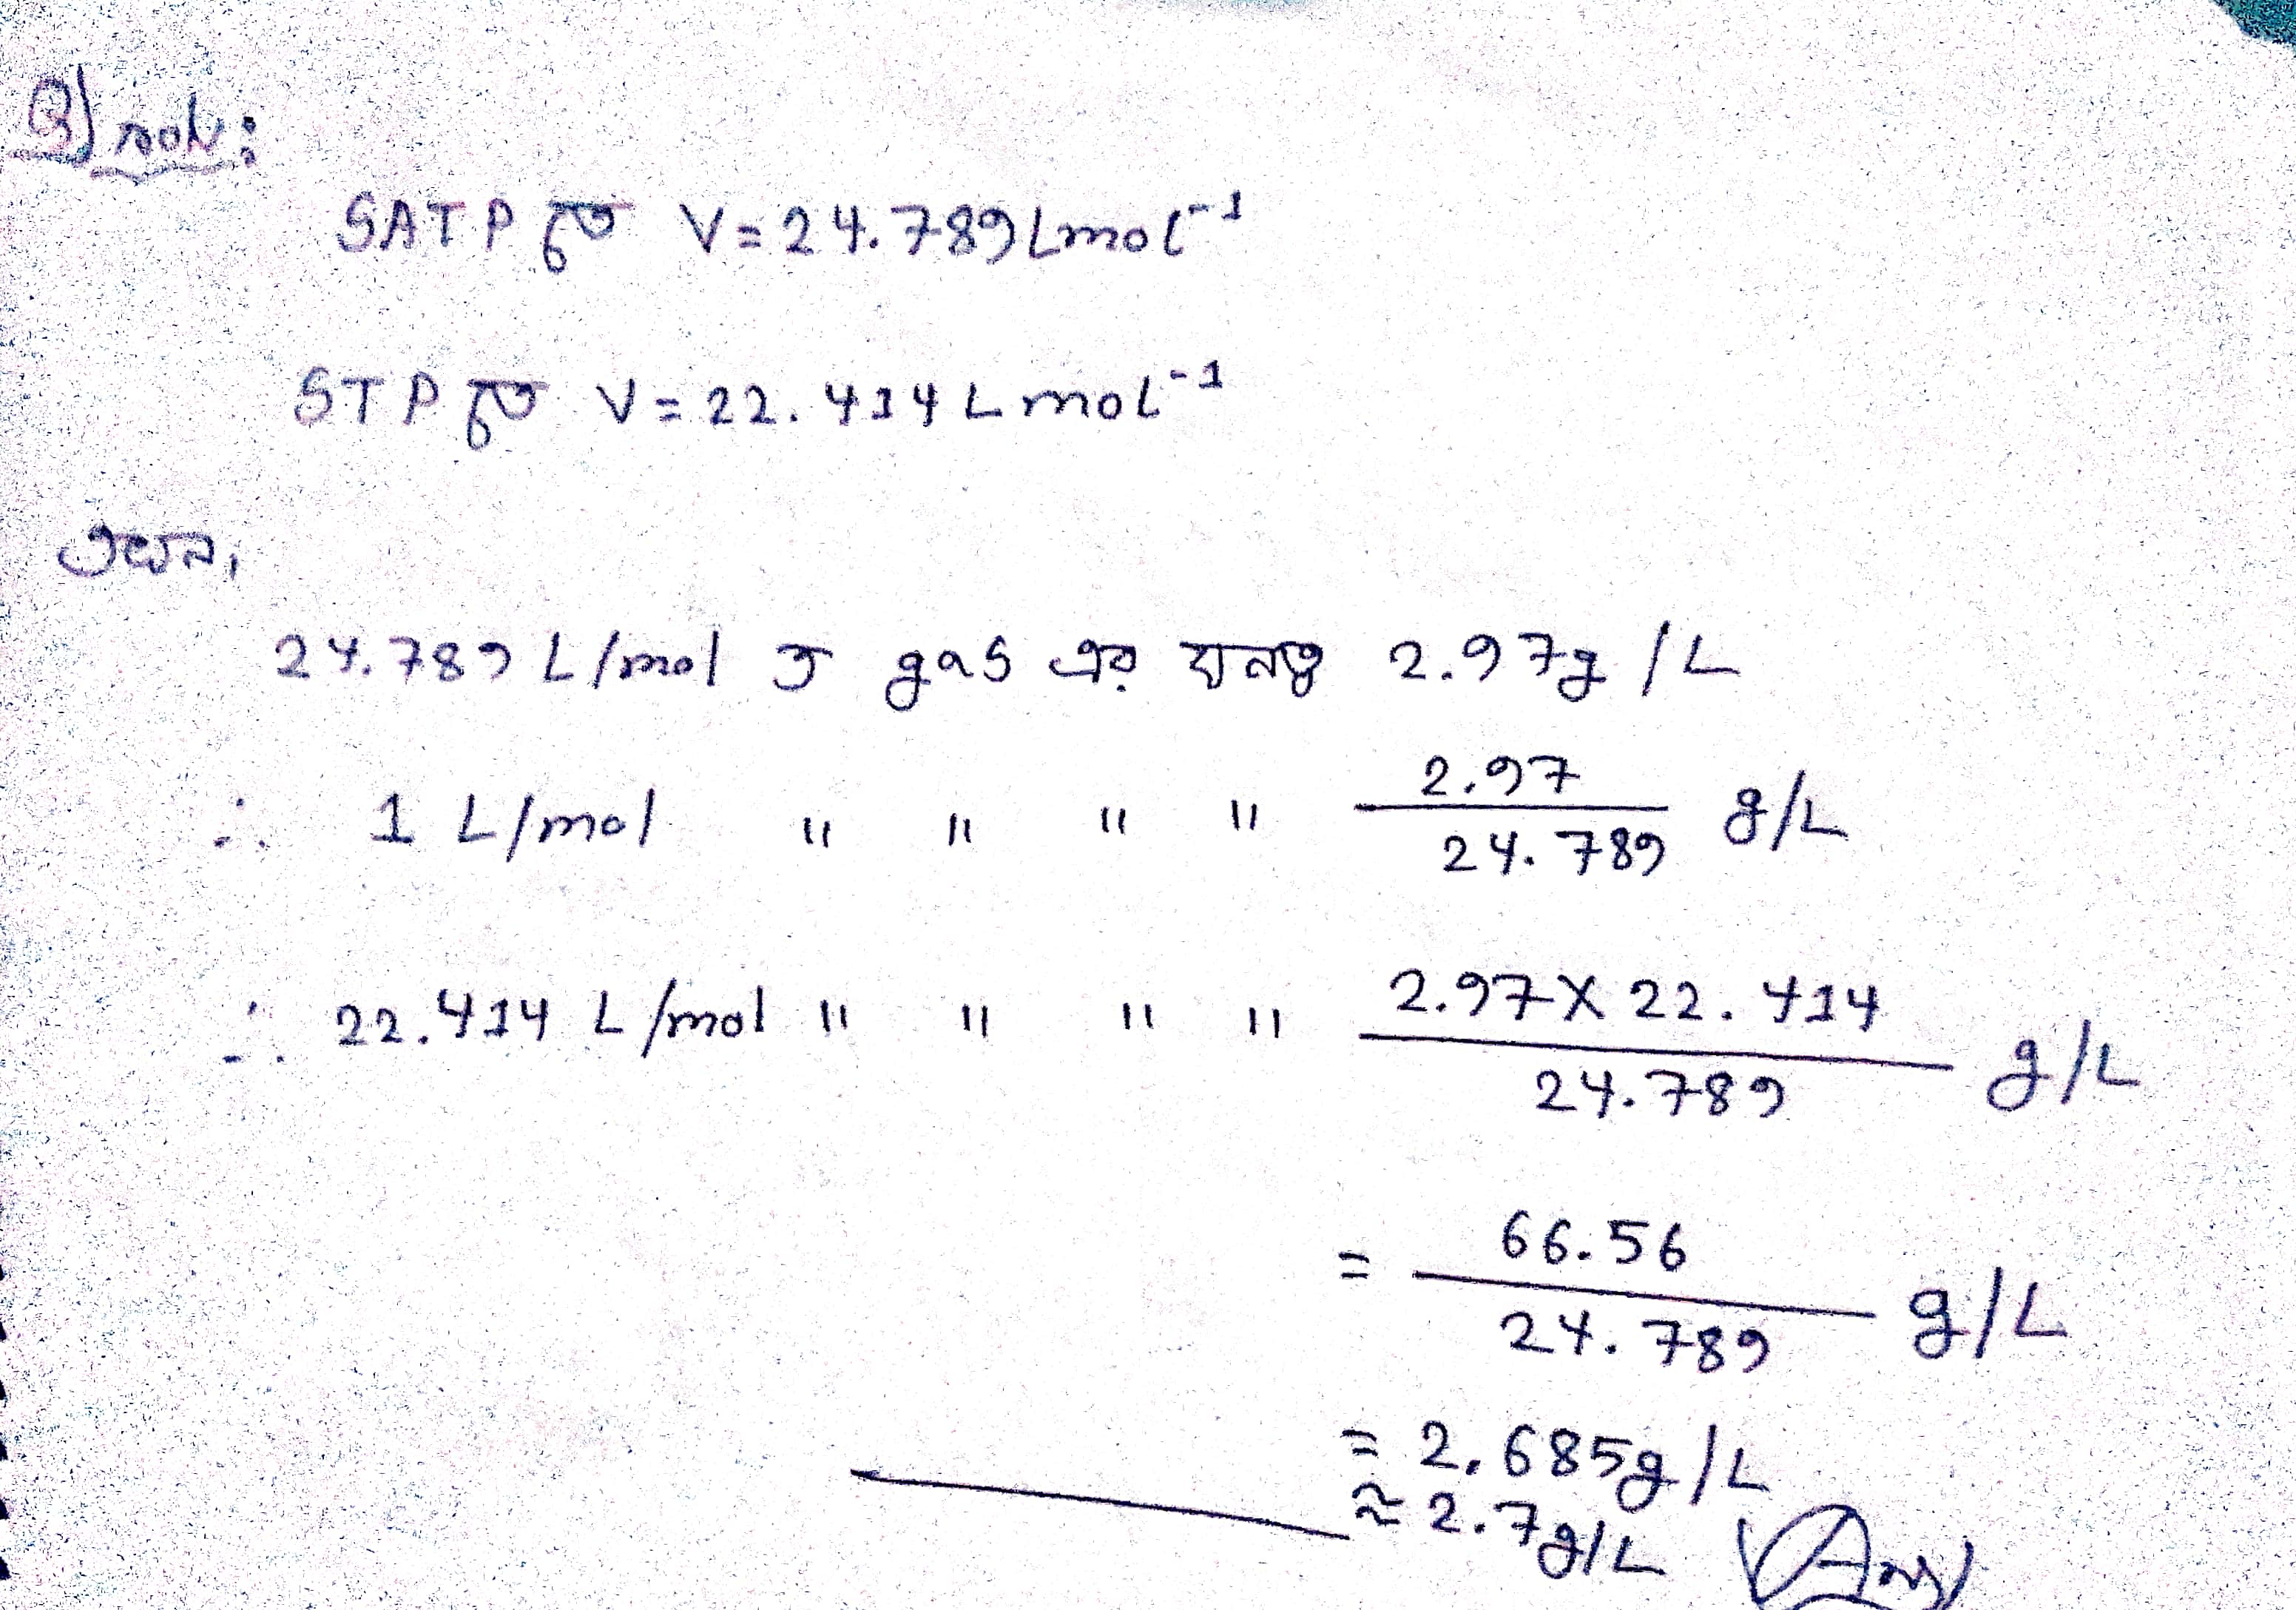 Q) sol:
SATP তে V = 24.789 Lmol⁻¹
STP তে V = 22.414 L mol⁻¹
এখন,
24.789 L/mol এ gas এর ঘনত্ব 2.97g/L
∴ 1 L/mol " " " " 2.97/24.789 g/L
∴ 22.414 L/mol " " " " 2.97 X 22.414/24.789 g/L
= 66.56/24.789 g/L
= 2.685g/L
≈ 2.7g/L (Ans)